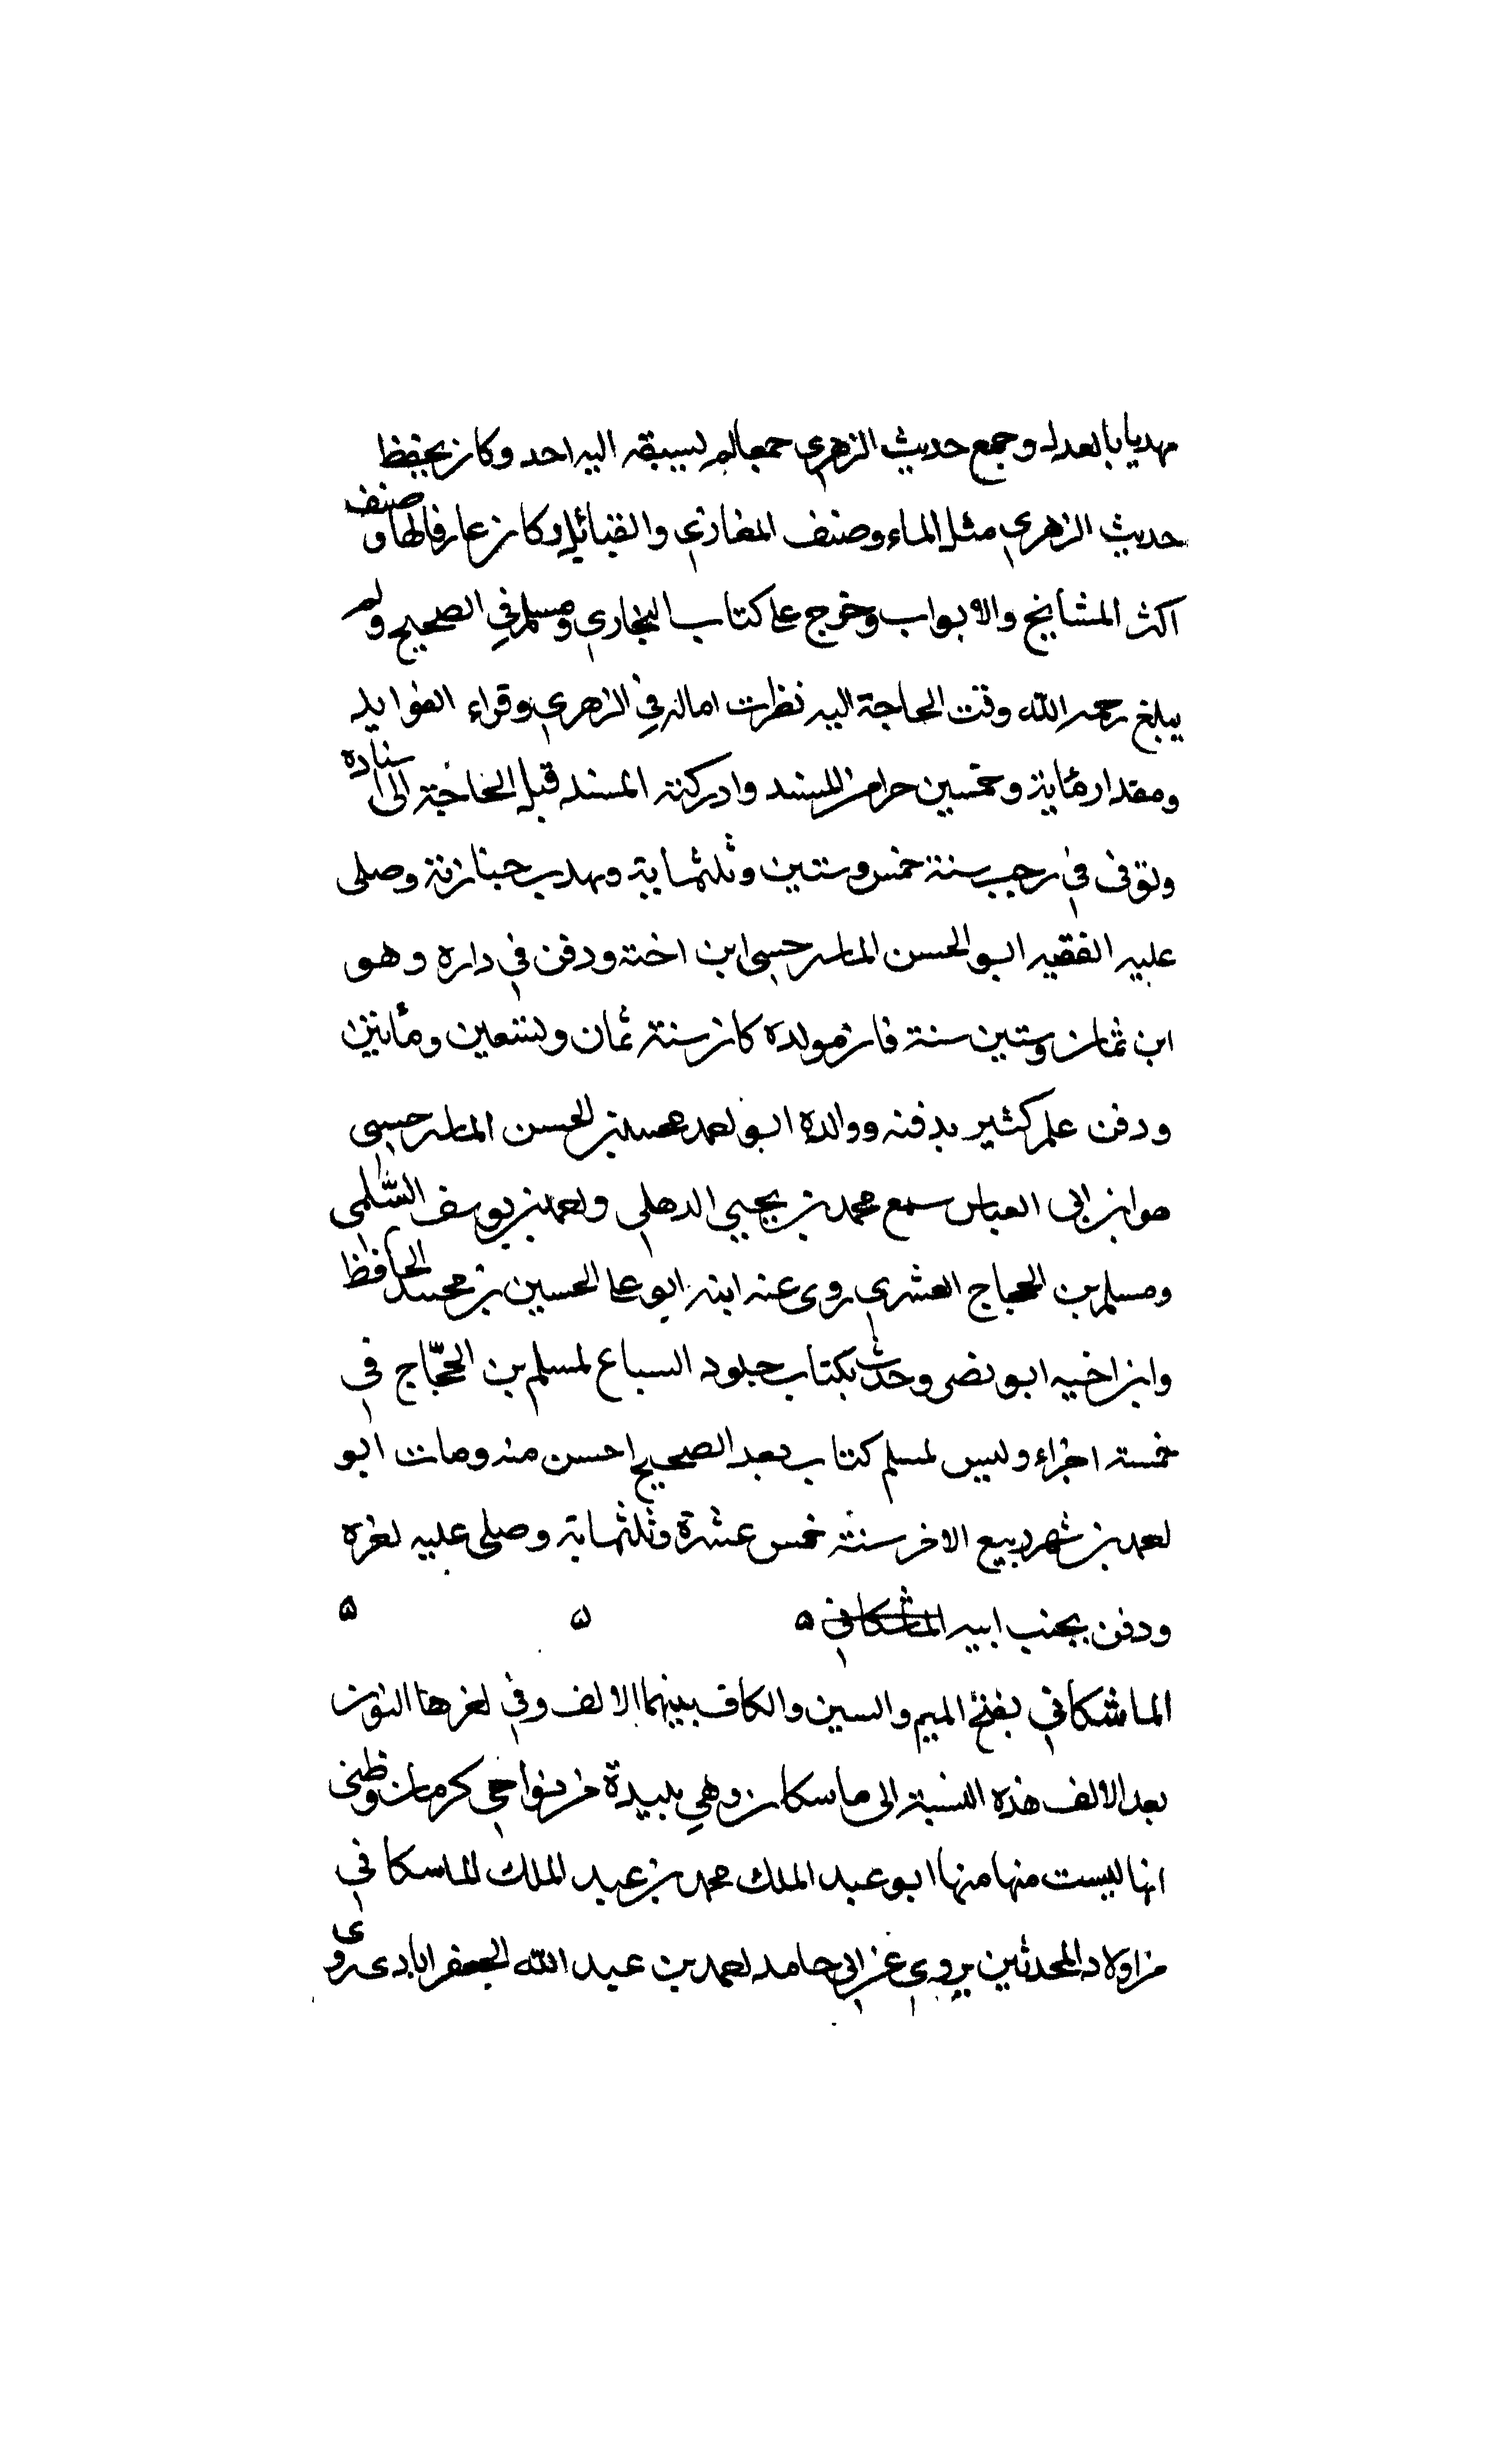 مهديا بالعدل وجمع حديث الزهري جمعا لم يسبقه اليه احد وكان يحفظ
حديث الزهري مثل الماء وصنف المغازي والقبائل وكان عارفا لها وصنف
اكثر المشايخ والابواب وخرج على كتاب البخاري ومسلم في الصحيح ولم
يبلغ رحمه الله وقت الحاجة اليه نظرت اماله في الزهري وقراء الفوايد
ومقدار مايه وخمسين جزا من المسند وادركته المنية قبل الحاجة الى اسناده
وتوفى في رجب سنة خمس وستين وثلثماية وشهدت جنازته وصلى
عليه الفقيه ابو الحسن الماسرجسي ابن اخته ودفن في داره وهو
ابن ثمان وستين سنة فان مولده كان سنة ثمان وتسعين ومأتين
ودفن علم كثير بدفنه ووالده ابو احمد محمد بن الحسن الماسرجسي
هو ابن ابى العباس سمع محمد بن يحيى الدهلي واحمد بن يوسف السلمى
ومسلم بن الحجاج القشري روى عنه ابنه ابو على الحسين بن محمد الحافظ
وابن اخيه ابو نصر وحدث بكتاب جلود السباع لمسلم بن الحجاج في
خمسة اجزاء وليس لمسلم كتاب بعد الصحيح احسن منه ومات ابو
احمد بن شهر ربيع الاخر سنة خمس عشرة وثلثماية وصلى عليه
ودفن بجنب ابيه الماشكاني ۵ ۵ ۵
الماشكاني بفتح الميم والسين والكاف بينهما الالف وفي اخرها النون
بعد الالف هذه النسبة الى ماسكان وهي بليدة من نواحي كرمان وظنى
انها ليست منها منها ابو عبد الملك محمد بن عبد الملك الماسكاني
من اولاد المحدثين يروي عن ابي حامد احمد بن عبد الله الجعفرابادى روى